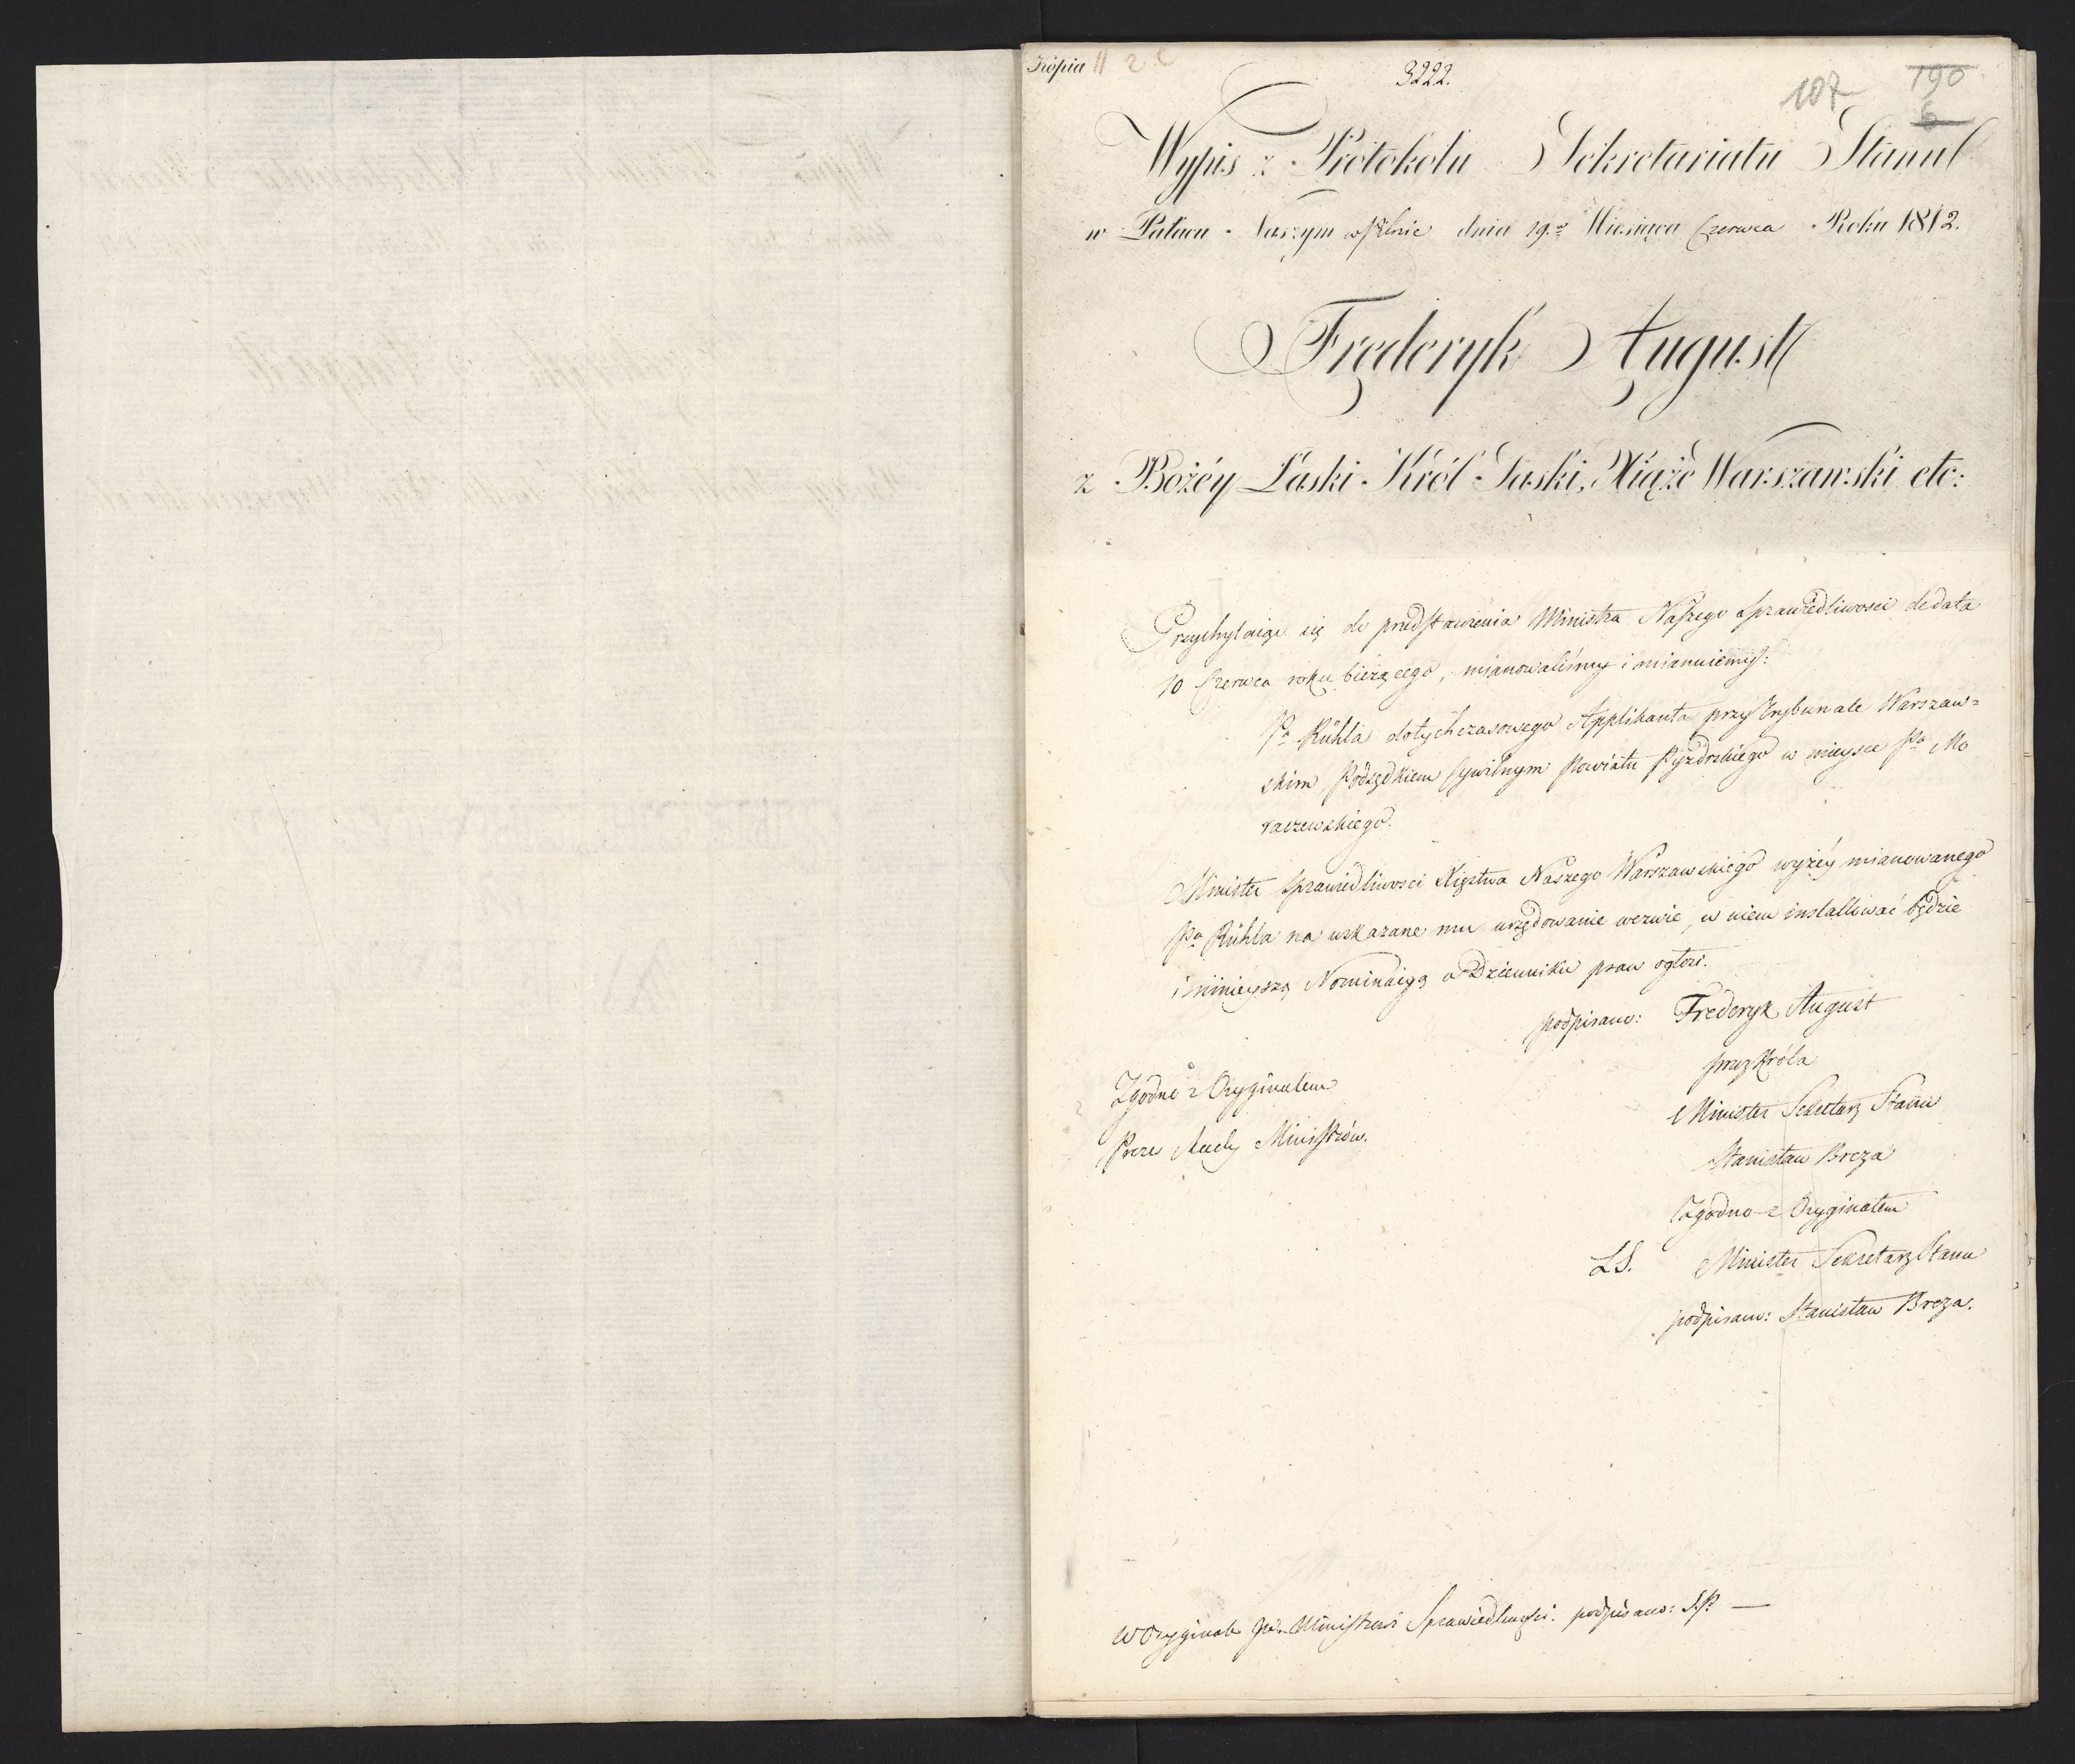 Kopia
3222.
107 190
6
Wypis z Protokołu Sekretariatu Stanu
w Pałacu Naszym w Pilnic dnia 19º Miesiąca Czerwca Roku 1812.
Fryderyk August
z Bożéy Łaski Król Saski, Xiąże Warszawski etc:
Przychylaiąc się do przedstawienia Ministra Naszego Sprawiedliwości de data
10 Czerwca roku bieżącego, mianowaliśmy i mianuiemy:
Pa Rühla dotychczasowego Applikanta przy Trybunale Warszaw=
skim, Podsędkiem Cywilnym Powiatu Pyzdrskiego w mieysce Pa Mo
raczewskiego.
Minister Sprawiedliwości Xięstwa Naszego Warszawskiego wyżéy mianowanego
Pa Rühla na wskazane mu urzędowanie wezwie, w niem installować będzie
i ninieyszą Nominacyą w Dzienniku praw ogłosi.
podpisano: Fryderyk August
przez Króla
Minister Sekretarz Stanu
Stanisław Breza
Zgodno z Oryginałem
Prezes Rady Ministrów.
Zgodno z Oryginałem
LS. Minister Sekretarz Stanu
podpisano: Stanisław Breza.
W Oryginale Ministrowi Sprawiedliwości. podpisano: S.P. —